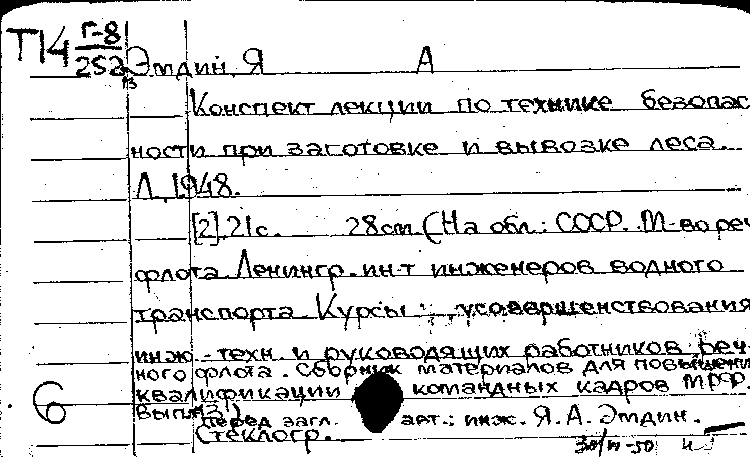 Т14 Г-8
252
Эмдин, Я А
Конспект лекции по технике безопас
ности при заготовке и вывозке леса.
Л, 1948.
[2], 21с. 28см (На обл.: СССР. М-во реч
флота. Ленингр. ин-т инженеров водного
транспорта. Курсы усовершенствования
инж.-техн. и руководящих работников реч-
ного флота. Сборник материалов для повышени
квалификации командных кадров МРФ.
Вып.
6 Перед загл. авт.: инж. Я.А. Эмдин.
Стеклогр.